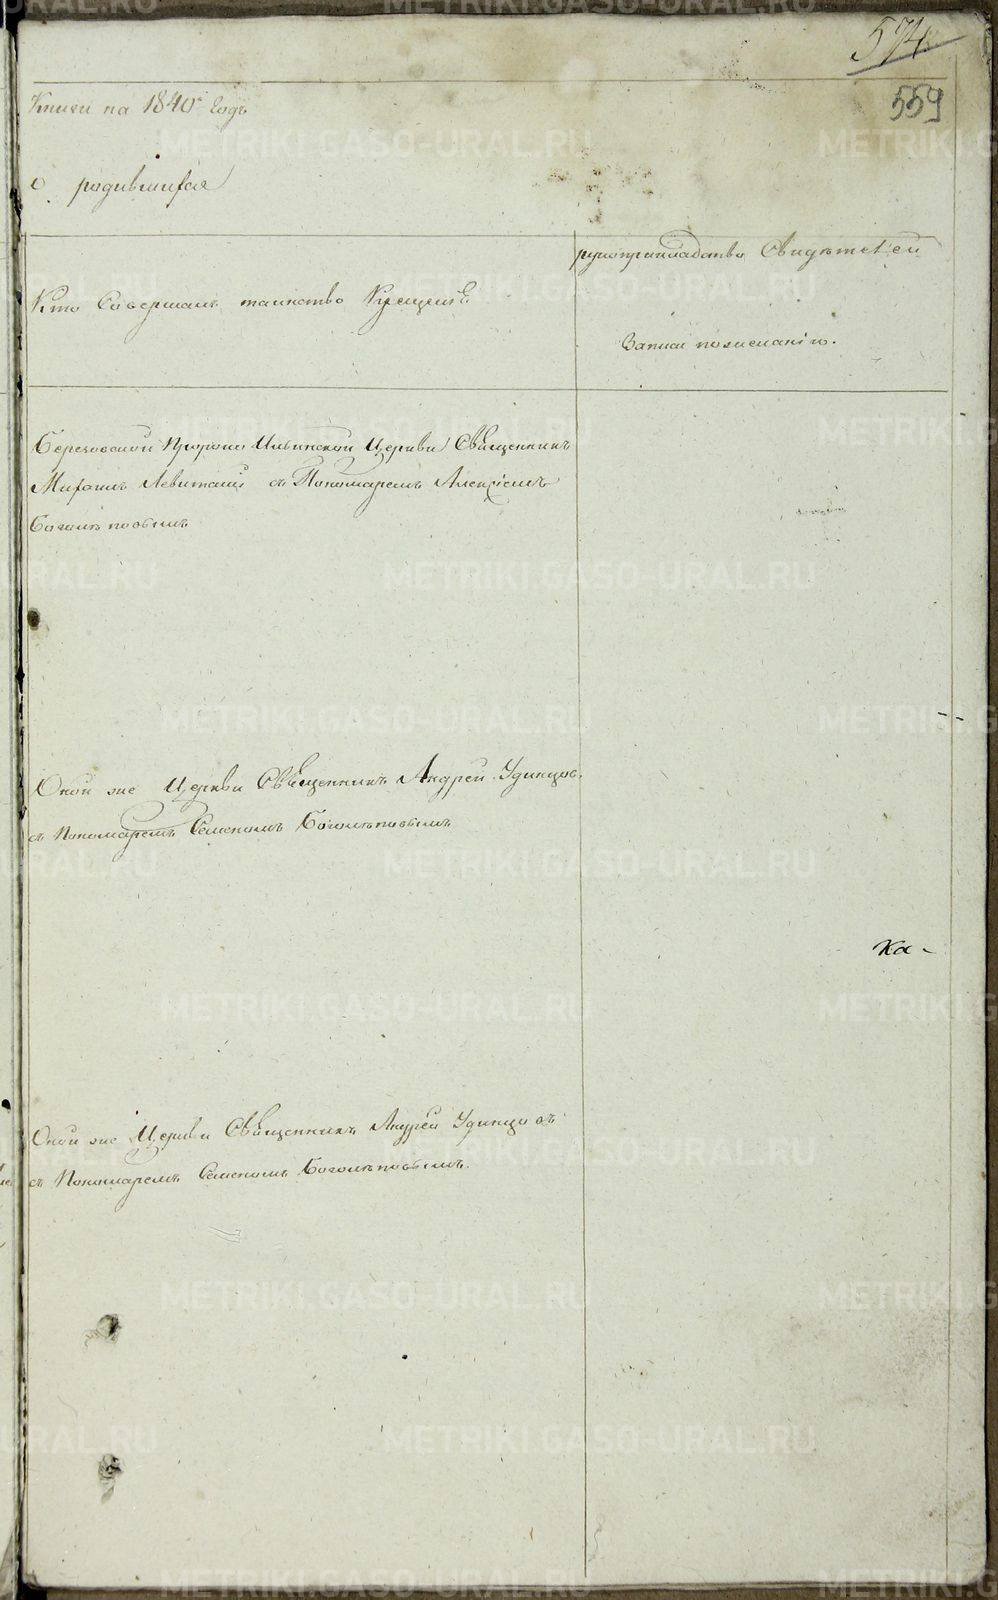 574
559
Книги на 1840й Годъ
о родившихся
Кто Совершалъ таинство Крещенiе
рукоприкладство Свидѣтелей
Записи по желанiю.
Березовской Пророко Ильинской Церкви Священникъ
Михаилъ Левитскiй съ Пономаремъ Алексѣемъ
Боголѣповымъ
Оной же Церкви Священникъ Андрей Удинцовъ
съ Пономаремъ Семеномъ Боголѣповымъ
ка-
Оной же Церкви Священникъ Андрей Удинцовъ
съ Пономаремъ Семеномъ Боголѣповымъ.
METRIKI.GASO-URAL.RU